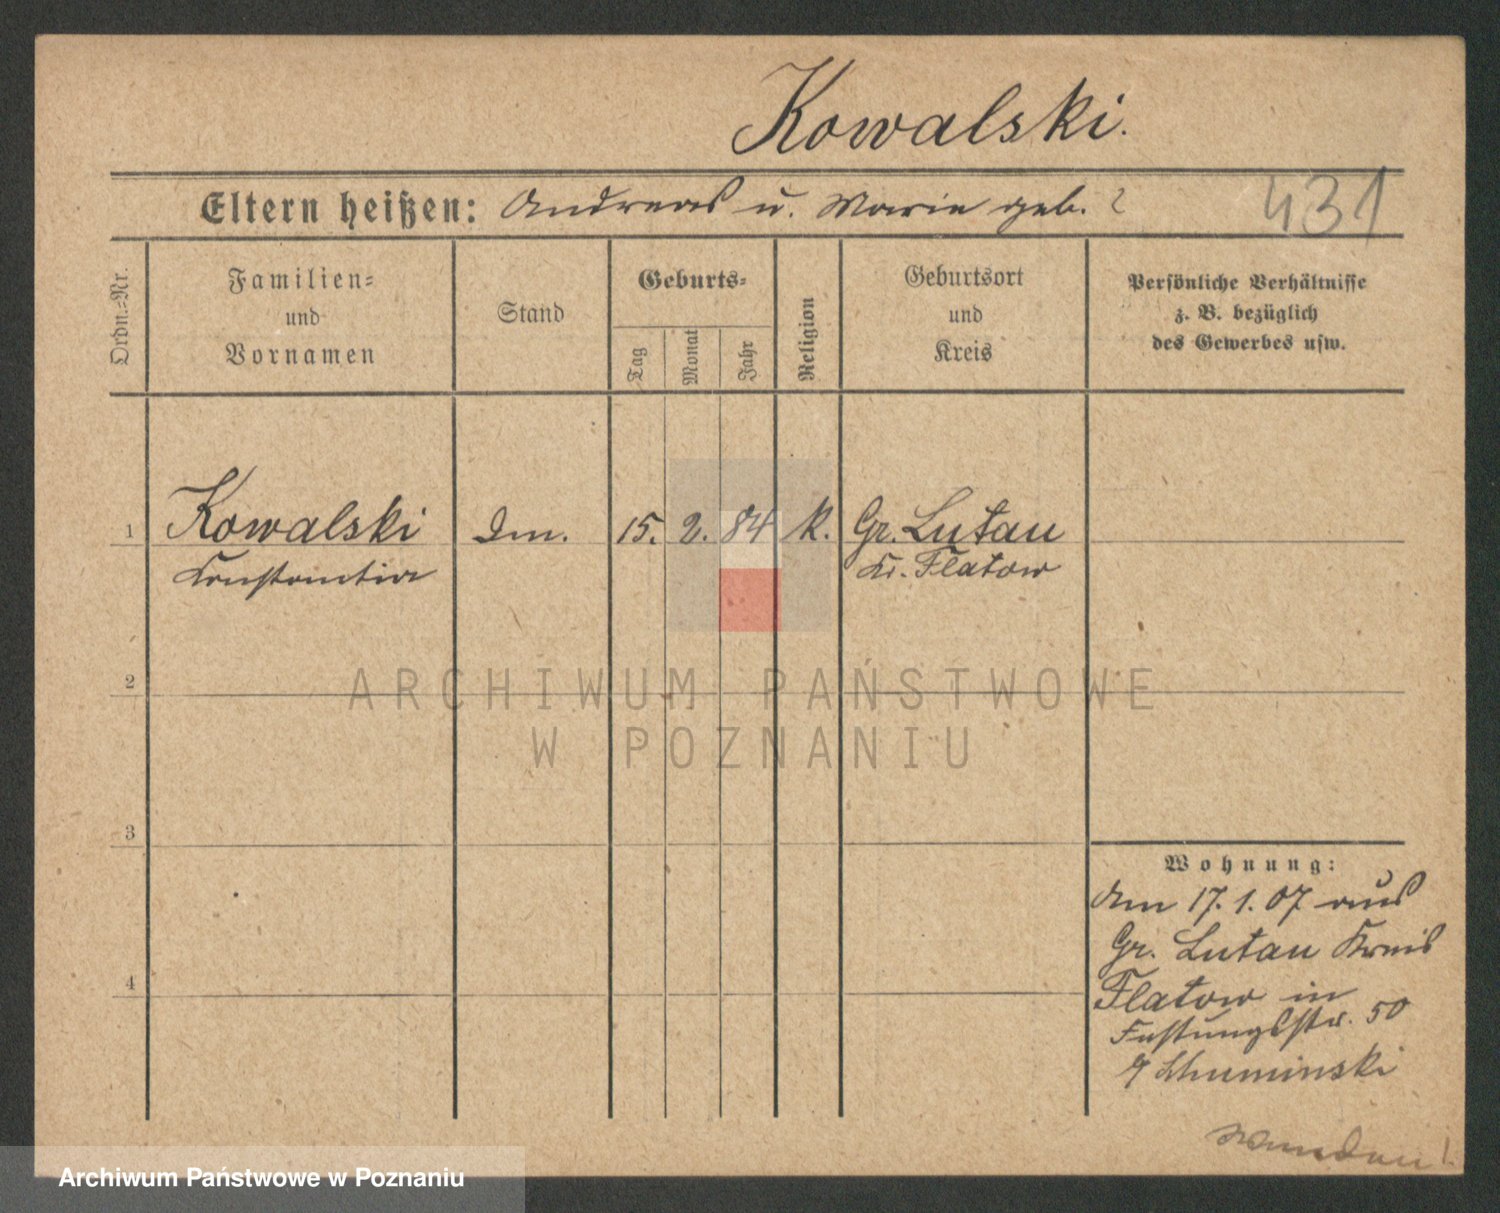 Kowalski.
Eltern heißen: Andreas u. Marie geb. ?
431
Ordn.-Nr.
Familien-
und
Vornamen
Stand
Geburts-
Tag
Monat
Jahr
Religion
Geburtsort
und
Kreis
Persönliche Verhältnisse
z. B. bezüglich
des Gewerbes usw.
1 Kowalski 15. 2. 84 k. Gr. Lutau
Constantia Kr. Flatow
2
ARCHIWUM PAŃSTWOWE
W POZNANIU
3
Wohnung:
Am 17. 1. 07 aus
Gr. Lutau Kreis
4
Flatow in
Festungsstr. 50
Wenden!
Archiwum Państwowe w Poznaniu